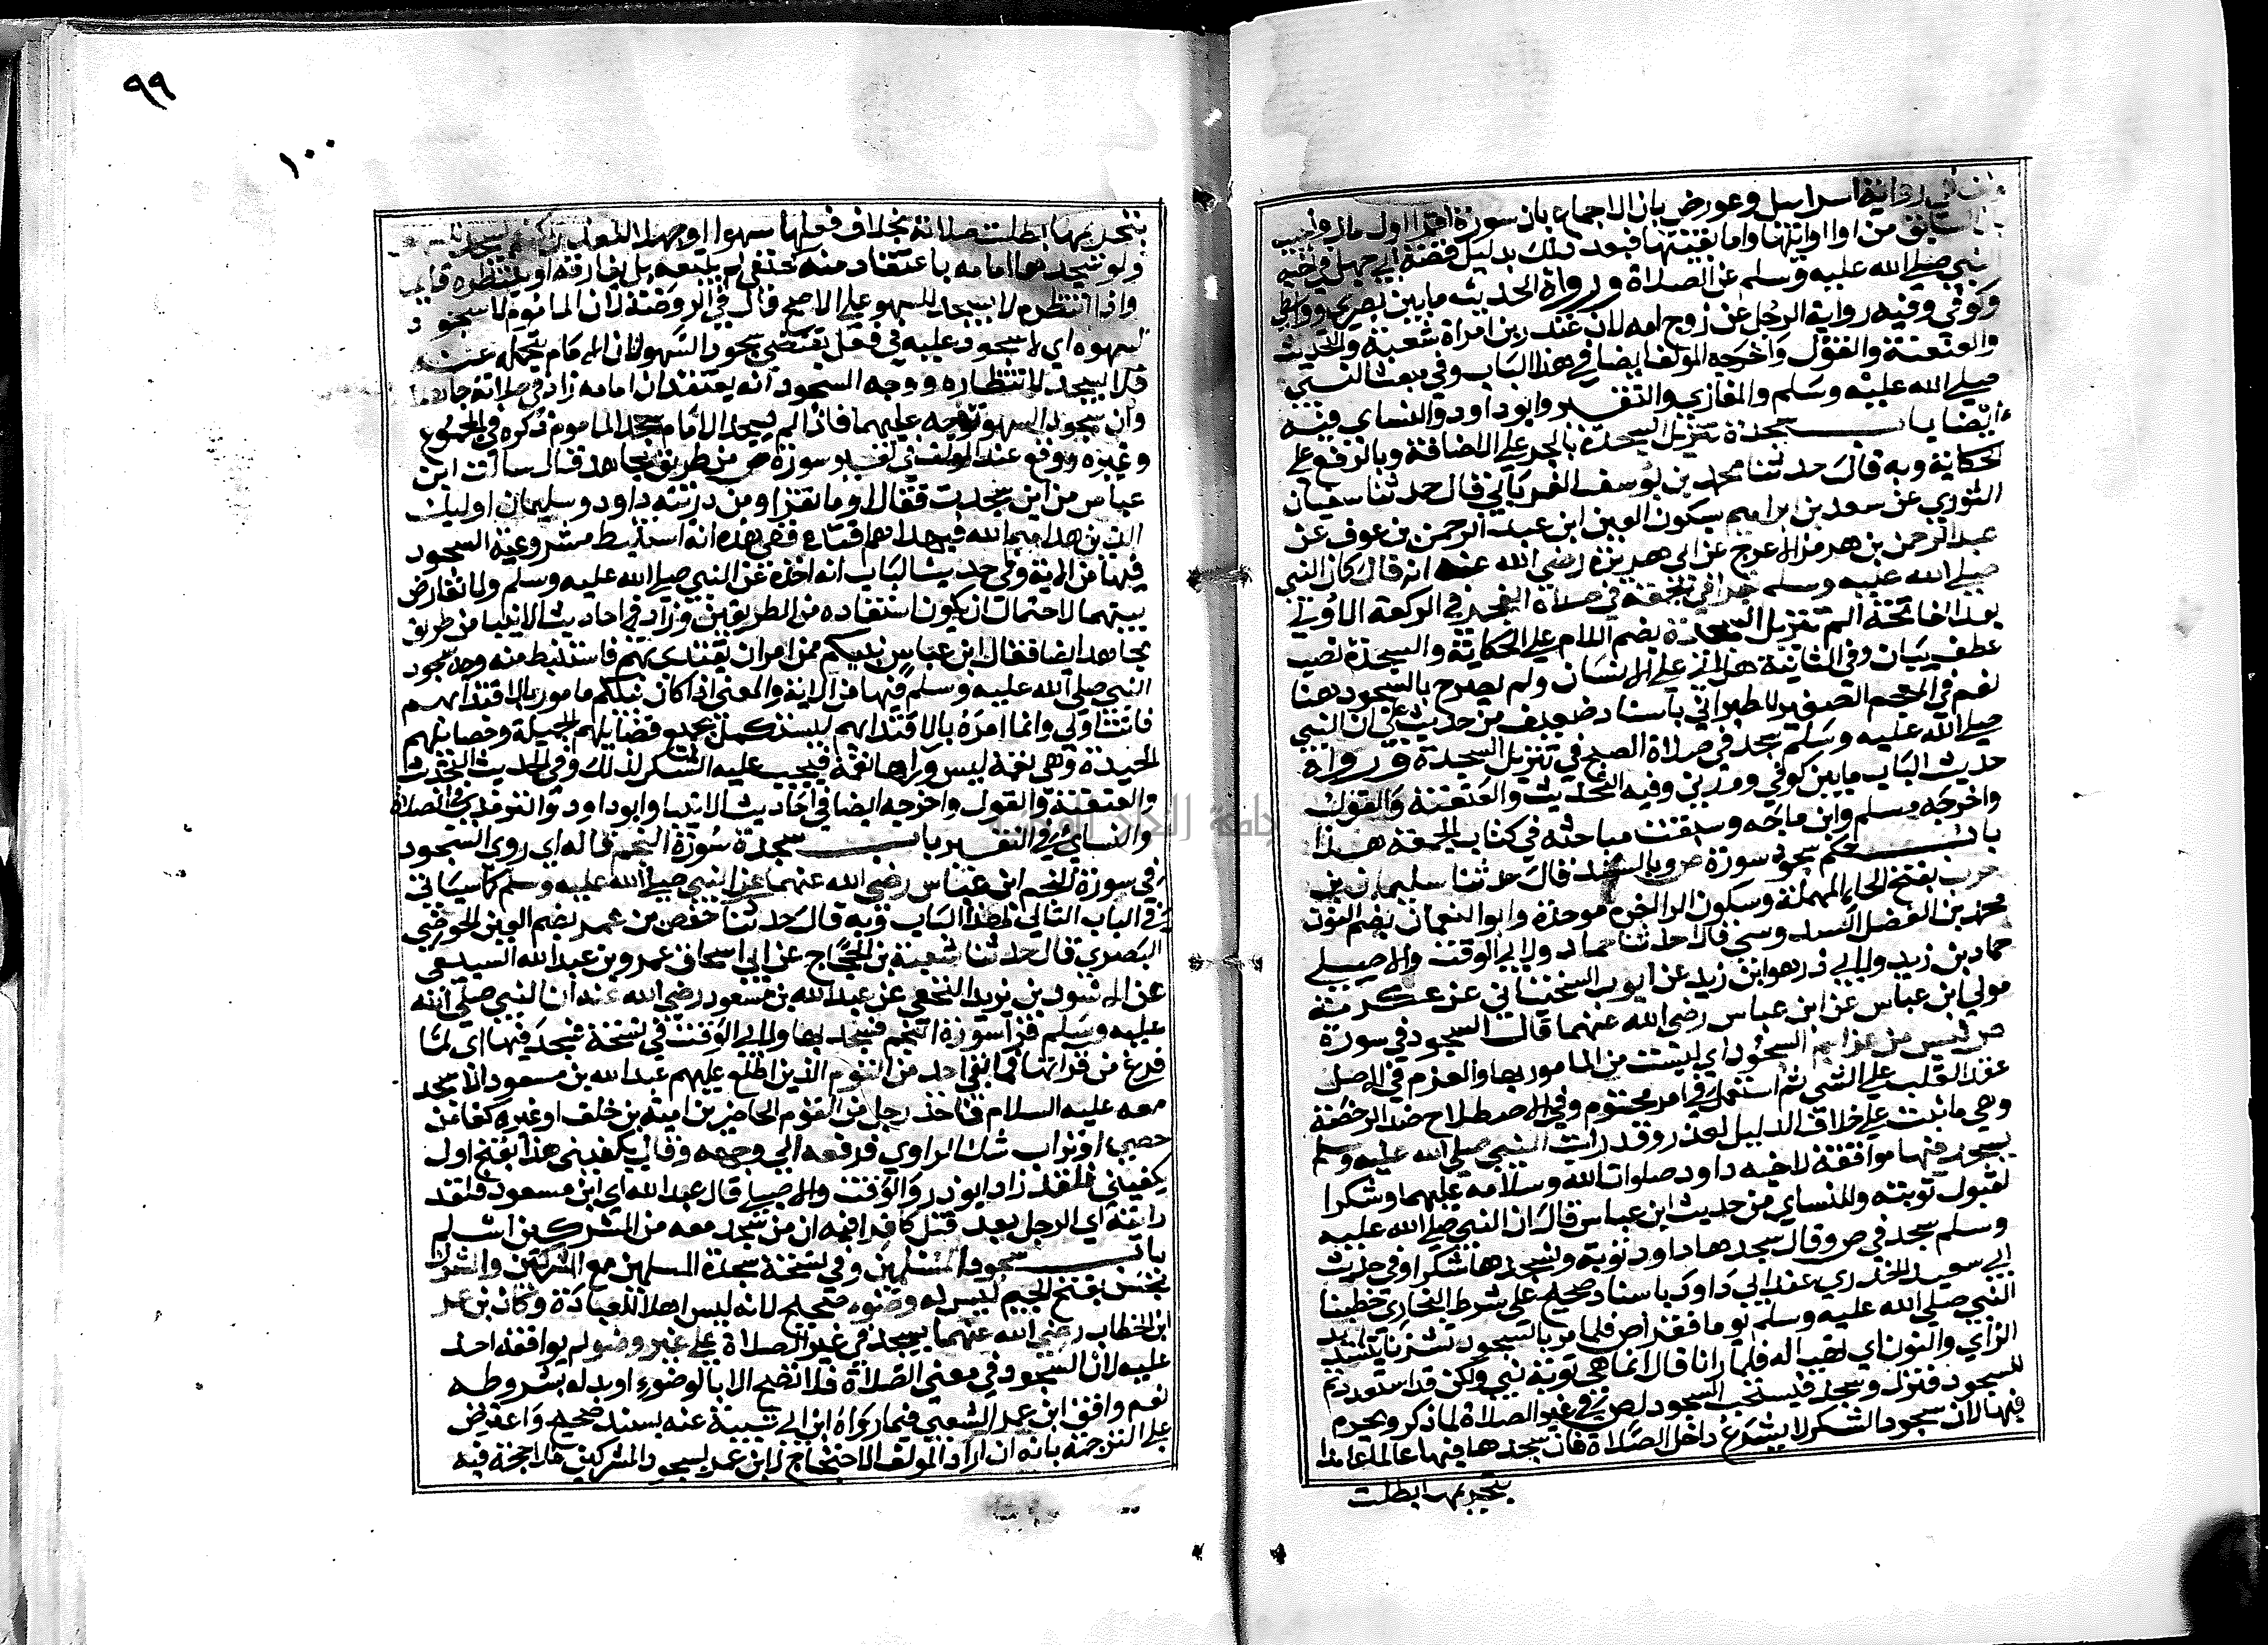 في رواية اسراييل وعورض بان الاجماع بان سورة اقرا اول ما نزل واجيب
بان السابق من اوايلها واما بقيتها فبعد ذلك بدليل قصة ابي جهل في نهيه
النبي صلى الله عليه وسلم عن الصلاة ورواة الحديث ما بين بصري وواسطي
وكوفي وفيه رواية الرجل عن زوج امه لان غندر ابن امراة شعبة والتحديث
والعنعنة والقول واخرجه المولف ايضا في هذا الباب وفي مبعث النبي
صلى الله عليه وسلم والمغازي والتفسير وابو داود والنساي فيه
ايضا باب سجدة تنزيل السجدة بالجر على الاضافة وبالرفع على
الحكاية وبه قال حدثنا محمد بن يوسف الفريابي قال حدثنا سفيان
الثوري عن سعد بن ابراهيم بسكون العين ابن عبد الرحمن بن عوف عن
عبد الرحمن بن هرمز الاعرج عن ابي هريرة رضي الله عنه انه قال كان النبي
صلى الله عليه وسلم يقرا في الجمعة في صلاة الفجر في الركعة الاولى
بعد الفاتحة الم تنزيل السجدة بضم اللام على الحكاية والسجدة نصب
عطف بيان وفي الثانية هل اتى على الانسان ولم يصرح بالسجود هنا
نعم في المعجم الصغير للطبراني باسناد ضعيف من حديث علي ان النبي
صلى الله عليه وسلم سجد في صلاة الصبح في تنزيل السجدة ورواة
حديث الباب ما بين كوفي ومدني وفيه التحديث والعنعنة والقول
واخرجه مسلم وابن ماجه وسبقت مباحثه في كتاب الجمعة هذا
باب حكم سجود سورة ص وبالسند قال حدثنا سليمان بن
حرب بفتح الحاء المهملة وسكون الرا اخره موحدة وابو النعمان بضم النون
محمد بن الفضل السدوسي قالا حدثنا حماد ولابي الوقت والاصيلي
حماد بن زيد ولابي ذر هو ابن زيد عن ايوب السختياني عن عكرمة
مولى ابن عباس عن ابن عباس رضي الله عنهما قال السجود في سورة
ص ليس من عزايم السجود اي ليست من المامور بها والعزم في الاصل
عقد القلب على الشي ثم استعمل في امر محتوم وفي الاصطلاح ضد الرخصة
وهي ما ثبت على خلاف الدليل لعذر وقد رايت النبي صلى الله عليه وسلم
يسجد فيها موافقة لاخيه داود صلوات الله وسلامه عليهما وشكرا
لقبول توبته وللنساي من حديث ابن عباس قال ان النبي صلى الله عليه
وسلم سجد في ص وقال سجدها داود توبة ونسجدها شكرا وفي حديث
ابي سعيد الخدري عند ابي داود باسناد صحيح على شرط البخاري خطبنا
النبي صلى الله عليه وسلم يوما فقرا ص فلما مر بالسجود تشزنا بتشديد
الزاي والنون اي تهيانا له فلما رانا قال انما هي توبة نبي ولكن قد استعددتم
للسجود فنزل وسجد فيستحب السجود لص في غير الصلاة لما ذكر ويحرم
فيها لان سجود الشكر لا يشرع داخل الصلاة فان سجدها فيها عالما عامدا
بتحريمها بطلت
٩٩
١٠٠
بتحريمها بطلت صلاته بخلاف فعلها سهوا او جهلا للعذر لكنه يسجد للسهو
ولو سجدها امامه باعتقاد منه كحنفي لم يتبعه بل يفارقه او ينتظره قايما
واذا انتظره لا يسجد للسهو على الاصح قال في الروضة لان الماموم لا سجود
لسهوه اي لا سجود عليه في فعل يقتضي سجود السهو لان الامام يتحمله عنه
فلا يسجد لانتظاره ووجه السجود انه يعتقد ان امامه زاد في صلاته جاهلا
وان سجود السهو توجه عليهما فاذا لم يسجد الامام سجد الماموم ذكره في المجموع
وغيره ووقع عند المولف في تفسير سورة ص من طريق مجاهد قال سالت ابن
عباس من اين سجدت فقال او ما تقرا ومن ذريته داود وسليمان اوليك
الذين هدا هم الله فبهداهم اقتده ففي هذه انه استنبط مشروعية السجود
فيها من الاية وفي حديث الباب انه اخذه عن النبي صلى الله عليه وسلم ولا تعارض
بينهما لاحتمال ان يكون استفاده من الطريقين وزاد في احاديث الانبيا من طريق
مجاهد ايضا فقال ابن عباس نبيكم ممن امر ان يقتدي بهم فاستنبط منه وجه سجود
النبي صلى الله عليه وسلم فيها من الاية والمعنى اذا كان نبيكم مامورا بالاقتدا بهم
فانت اولى وانما امره بالاقتدا بهم ليستكمل بجميع فضايلهم الجميلة وخصايلهم
الحميدة وهي نعمة ليس وراها نعمة فيجب عليه الشكر لذلك وفي الحديث التحديث
والعنعنة والقول واخرجه ايضا في احاديث الانبيا وابو داود والترمذي في الصلاة
والنساي في التفسير باب سجدة سورة النجم قاله اي روى السجود
في سورة النجم ابن عباس رضي الله عنهما عن النبي صلى الله عليه وسلم كما سياتي
في الباب التالي لهذا الباب وبه قال حدثنا حفص بن عمر بضم العين الحوضي
البصري قال حدثنا شعبة بن الحجاج عن ابي اسحاق عمرو بن عبد الله السبيعي
عن الاسود بن يزيد النخعي عن عبد الله بن مسعود رضي الله عنه ان النبي صلى الله
عليه وسلم قرا سورة النجم فسجد بها ولابي الوقت في نسخة فسجد فيها اي لما
فرغ من قراتها فما بقي احد من القوم الذين اطلع عليهم عبد الله بن مسعود الا سجد
معه عليه السلام فاخذ رجل من القوم الحاضرين امية بن خلف او غيره كفا من
حصى او تراب شك الراوي فرفعه الى وجهه وقال يكفيني هذا بفتح اول
يكفيني فلقد زاد ابو ذر والوقت والاصيلي قال عبد الله اي ابن مسعود فلقد
رايته اي الرجل بعد قتل كافرا فيه ان من سجد معه من المشركين اسلم
باب سجود المسلمين وفي نسخة سجدة المسلمين مع المشركين والمشرك
نجس بفتح الجيم ليس له وضوء صحيح لانه ليس اهلا للعبادة وكان بن عمر
ابن الخطاب رضي الله عنهما يسجد في غير الصلاة على غير وضو لم يوافقه احد
عليه لان السجود في معنى الصلاة فلا تصح الا بالوضوء او بدله بشروطه
نعم وافق ابن عمر الشعبي فيما رواه ابن ابي شيبة عنه بسند صحيح واعترض
على الترجمة بانه ان اراد المولف الاحتجاج لابن عمر بسجود المشركين فلا حجة فيه